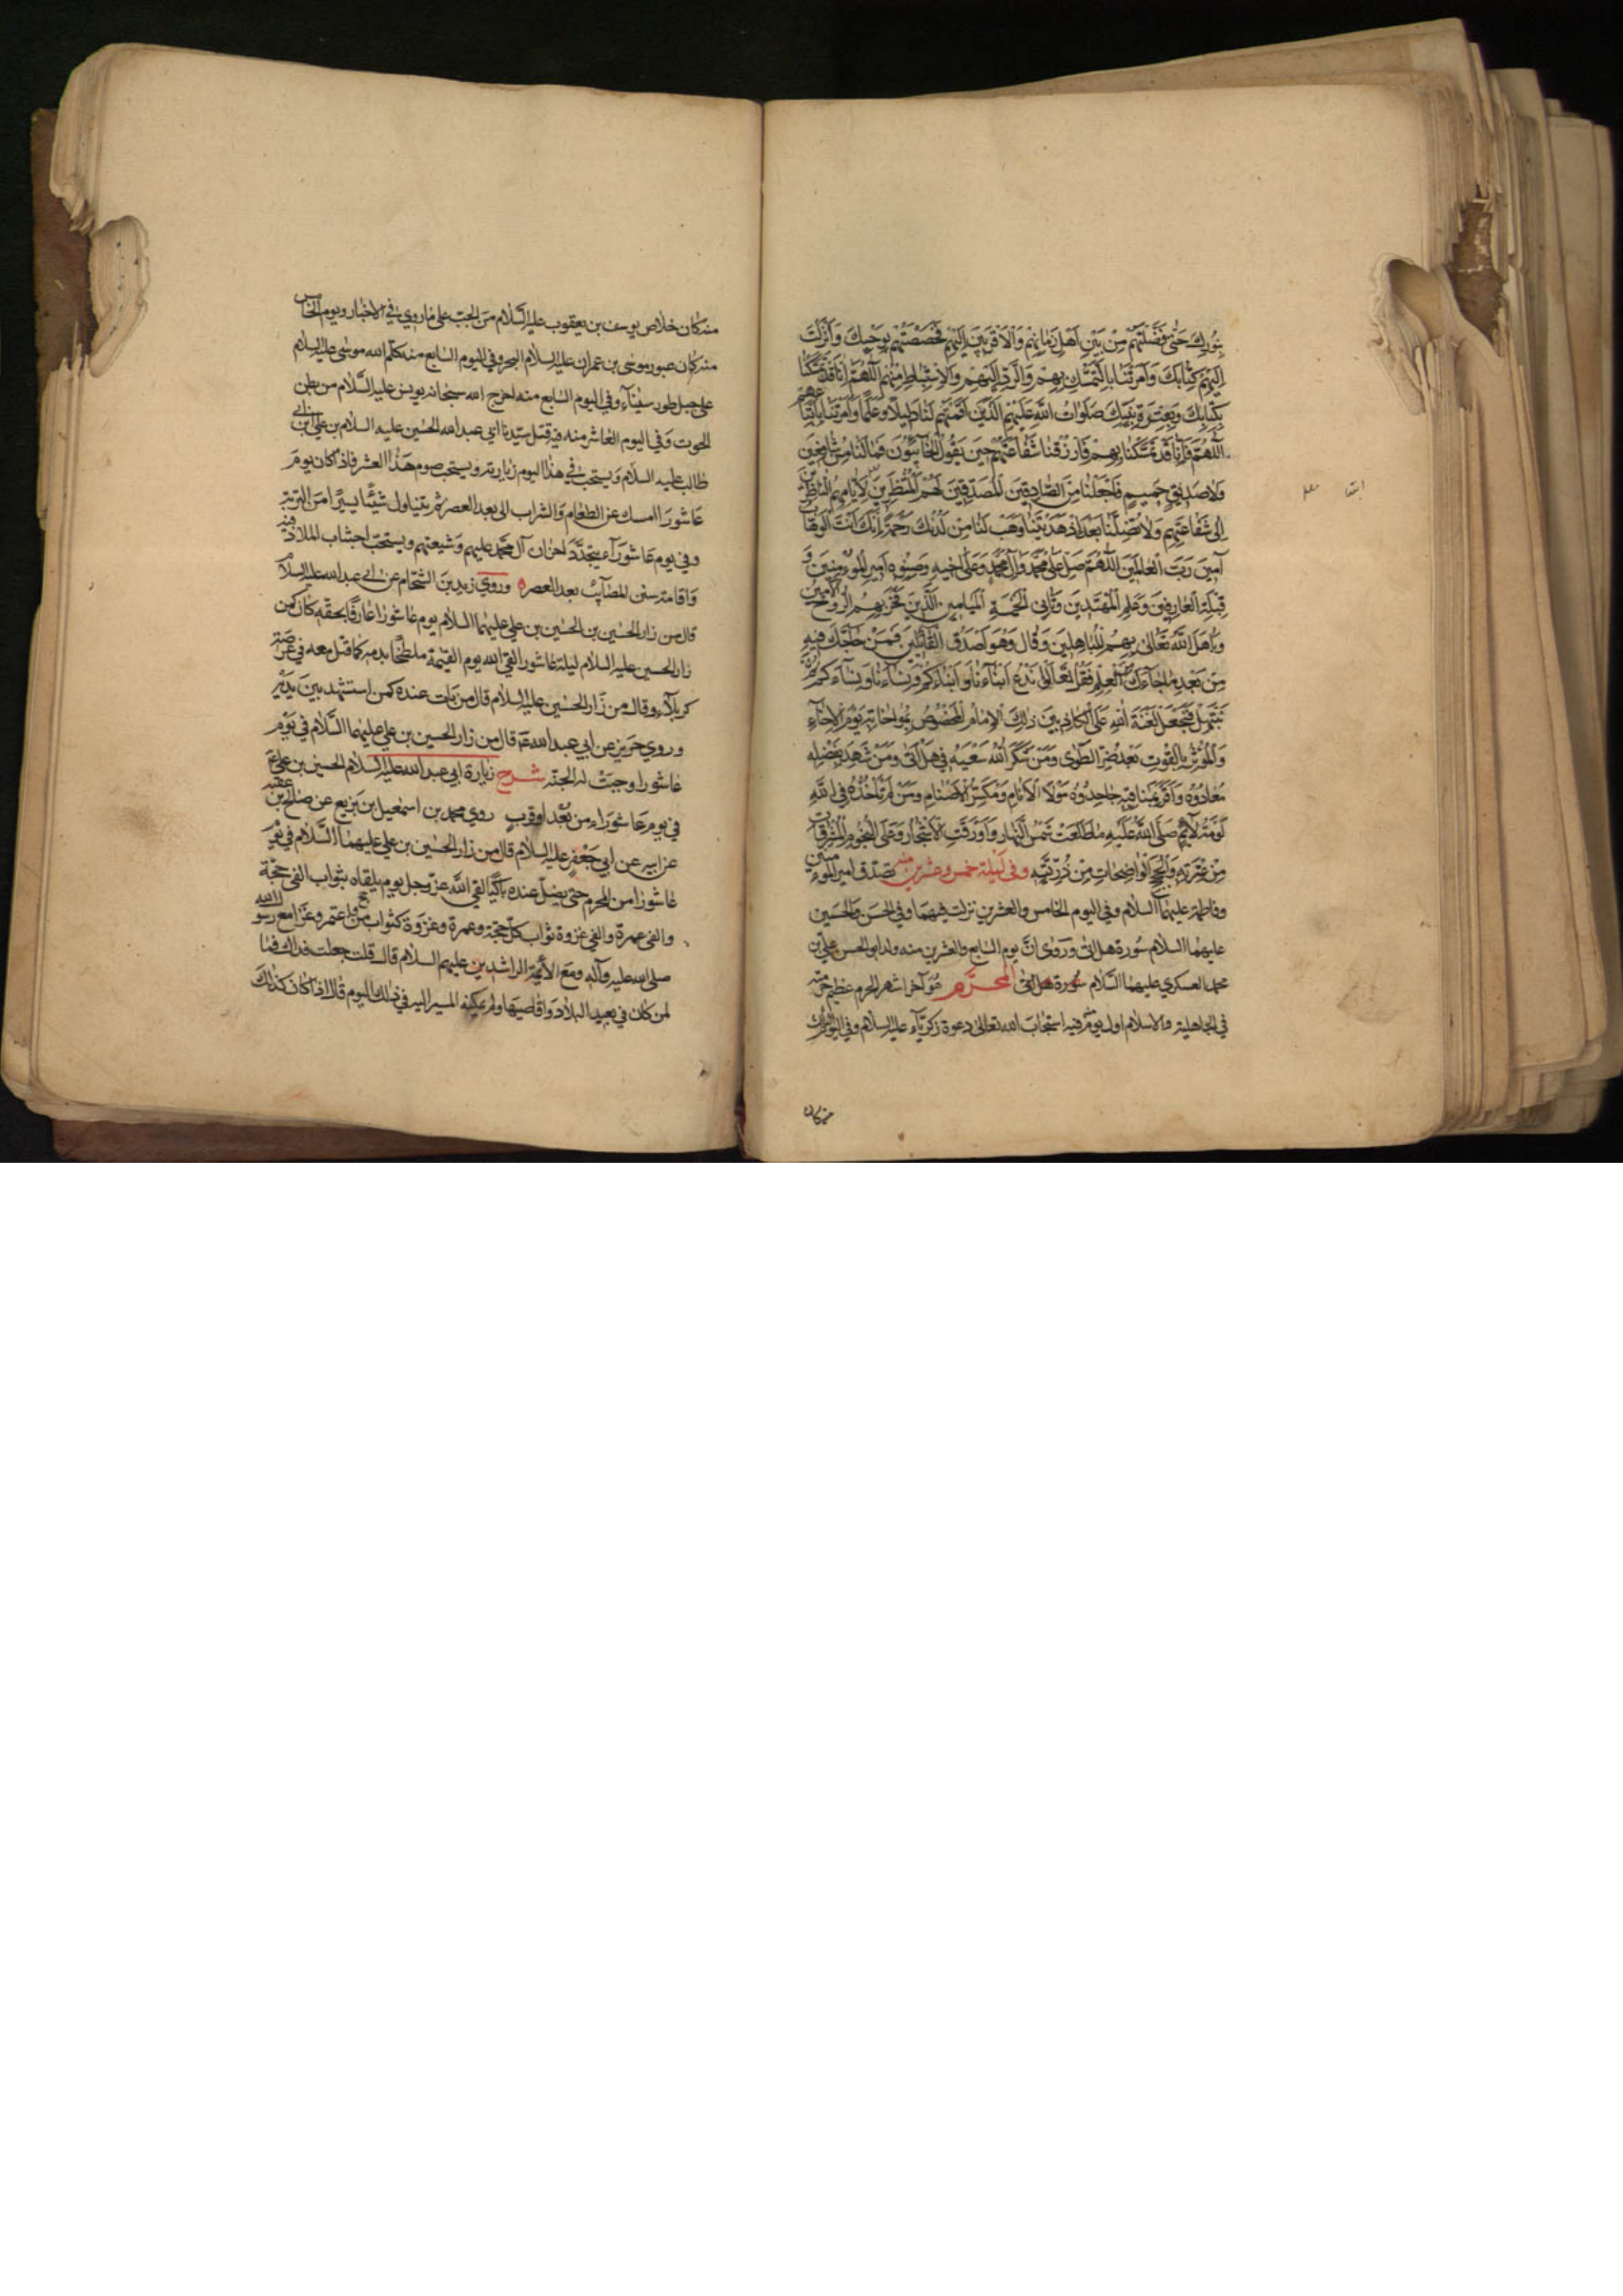 بِنُورِكَ حَتّى فَضَّلْتَهُمْ مِنْ بَيْنِ اَهْلِ زَمانِهِمْ وَالْاَقْرَبينَ اِلَيْهِمْ فَخَصَصْتَهُمْ بِوَحْيِكَ وَاَنْزَلْتَ
اِلَيْهِمْ كِتابَكَ وَاَمَرْتَنا بِالتَّمَسُّكِ بِهِمْ وَالرَّدِّ اِلَيْهِمْ وَالْاِسْتِنْباطِ مِنْهُمْ اَللّهُمَّ اِنّا قَدْ تَمَسَّكْنا
بِكِتابِكَ وَبِعِتْرَةِ نَبِيِّكَ صَلَواتُ اللّهِ عَلَيْهِمُ الَّذينَ اَقَمْتَهُمْ لَنا دَليلاً وَعَلَماً وَاَمَرْتَنا بِاتِّباعِهِمْ
اَللّهُمَّ فَاِنّا قَدْ تَمَسَّكْنا بِهِمْ فَارْزُقْنا شَفاعَتَهُمْ حينَ يَقُولُ الْخائِبُونَ فَما لَنا مِنْ شافِعينَ
وَلا صَديقٍ حَميمٍ فَاجْعَلْنا مِنَ الصّادِقينَ الْمُصَدِّقينَ لَهُمُ الْمُنْتَظِرينَ لِاَيّامِهِمُ النّاظِرينَ
اِلى شَفاعَتِهِمْ وَلا تُضِلَّنا بَعْدَ اِذْ هَدَيْتَنا وَهَبْ لَنا مِنْ لَدُنْكَ رَحْمَةً اِنَّكَ اَنْتَ الْوَهّابُ
آمينَ رَبَّ الْعالَمينَ اَللّهُمَّ صَلِّ عَلى مُحَمَّدٍ وَآلِ مُحَمَّدٍ وَعَلى اَخيهِ وَصِنْوِهِ اَميرِ الْمُؤْمِنينَ وَ
قِبْلَةِ الْعارِفينَ وَعَلَمِ الْمُهْتَدينَ وَثانِى الْخَمْسَةِ الْمَيامينِ الَّذينَ فَخَرَ بِهِمُ الرُّوحُ الْاَمينُ
وَباهَلَ اللّهُ تَعالى بِهِمُ الْمُباهِلينَ وَقالَ وَهُوَ اَصْدَقُ الْقائِلينَ فَمَنْ حاجَّكَ فيهِ
مِنْ بَعْدِ ما جاءَكَ مِنَ الْعِلْمِ فَقُلْ تَعالَوْا نَدْعُ اَبْناءَنا وَاَبْناءَكُمْ وَنِساءَنا وَنِساءَكُمْ
نَبْتَهِلْ فَنَجْعَلْ لَعْنَةَ اللّهِ عَلَى الْكاذِبينَ ذلِكَ الْاِمامُ الْمَخْصُوصُ بِمُواخاتِهِ يَوْمَ الْاِخاءِ
وَالْمُؤْثِرُ بِالْقُوتِ بَعْدَ ضُرِّ الطَّوى وَمَنْ شَكَرَ اللّهُ سَعْيَهُ فى هَلْ اَتى وَمَنْ شَهِدَ بِفَضْلِهِ
مُعادُوهُ وَاَقَرَّ بِمَناقِبِهِ جاحِدُوهُ مَوْلَا الْاَنامِ وَمُكَسِّرُ الْاَصْنامِ وَمَنْ لَمْ تَأْخُذْهُ فِى اللّهِ
لَوْمَةُ لائِمٍ صَلَّى اللّهُ عَلَيْهِ ما طَلَعَتْ شَمْسُ النَّهارِ وَاَوْرَقَتِ الْاَشْجارُ وَعَلَى النُّجُومِ الْمُشْرِقاتِ
مِنْ عِتْرَتِهِ وَالْحُجَجِ الْواضِحاتِ مِنْ ذُرِّيَّتِهِ وفى ليلة خمس وعشرين منه تصدق امير المؤمنين
وفاطمة عليهما السلام وفى اليوم الخامس والعشرين نزلت فيهما وفى الحسن والحسين
عليهما السلام سورة هل اتى وروى انّ يوم السابع والعشرين منه ولد ابو الحسن على بن
محمد العسكري عليهما السّلام سورة هل اتى المحرّم هو آخر اشهر الحرم عظيم حرمته
فى الجاهلية والاسلام اول يوم منه فيه استجاب الله تعالى دعوة زكريّاء عليه السلام وفى اليوم الثالث
منه كان
منه كان خلاص يوسف بن يعقوب عليه السلام من الجب على ما روي في الاخبار ويوم الخامس
منه كان عبور موسى بن عمران عليه السلام البحر وفى اليوم السابع منه كلّم الله موسى عليه السلام
على جبل طور سيناء وفى اليوم التاسع منه اخرج الله سبحانه يونس عليه السّلام من بطن
الحوت وفى اليوم العاشر منه فيه قتل سيّدنا ابي عبد الله الحسين عليه السلام بن علي ابن ابي
طالب عليه السلام ويستحب في هذا اليوم زيارته ويستحب صوم هذا العشر فاذا كان يوم
عاشورا امسك عن الطعام والشراب الى بعد العصر ثم يتناول شيئًا يسيرًا من التربة
وفى يوم عاشوراء يتجدّد احزان آل محمّد عليهم وشيعتهم ويستحبّ اجتناب الملاذ فيه
واقامة سنن المصائب بعد العصر ه وروي زيد بن الشحّام عن ابي عبد الله عليه السلام
قال من زار الحسين بن الحسين بن علي عليهما السلام يوم عاشورا عارفًا بحقّه كان كمن
زار الحسين عليه السلام ليلة عاشورا لقي الله يوم القيمة ملطّخًا بدمه كما قتل معه في عرصة
كربلاء وقال من زار الحسين عليه السلام قال من بات عنده كمن استشهد بين يديه
وروي حريز عن ابي عبد الله ع قال من زار الحسين بن علي عليهما السّلام في يوم
عاشورا وجبت له الجنّة شرح زيارة ابي عبد الله عليه السلام الحسين بن علي ع
في يوم عاشوراء من بعد او قرب روي محمد بن اسمعيل بن بزيع عن صالح بن عقبه
عن ابيه عن ابي جعفر عليه السلام قال من زار الحسين بن علي عليهما السّلام في يوم
عاشورا من المحرم حتى يضلّ عنده باكيًا لقي اللّه عزّ وجل يوم يلقاه بثواب الفي حجّة
والفى عمرة والفي غزوة ثواب كلّ حجّة وعمرة وغزوة كثواب من حج واعتمر وغزا مع رسول الله
صلى الله عليه وآله ومع الأئمّة الراشدين عليهم السلام قال قلت جعلت فداك فما
لمن كان في بعيد البلاد واقاصيها ولم يمكنه المسير اليه في ذلك اليوم قال اذا كان كذلك